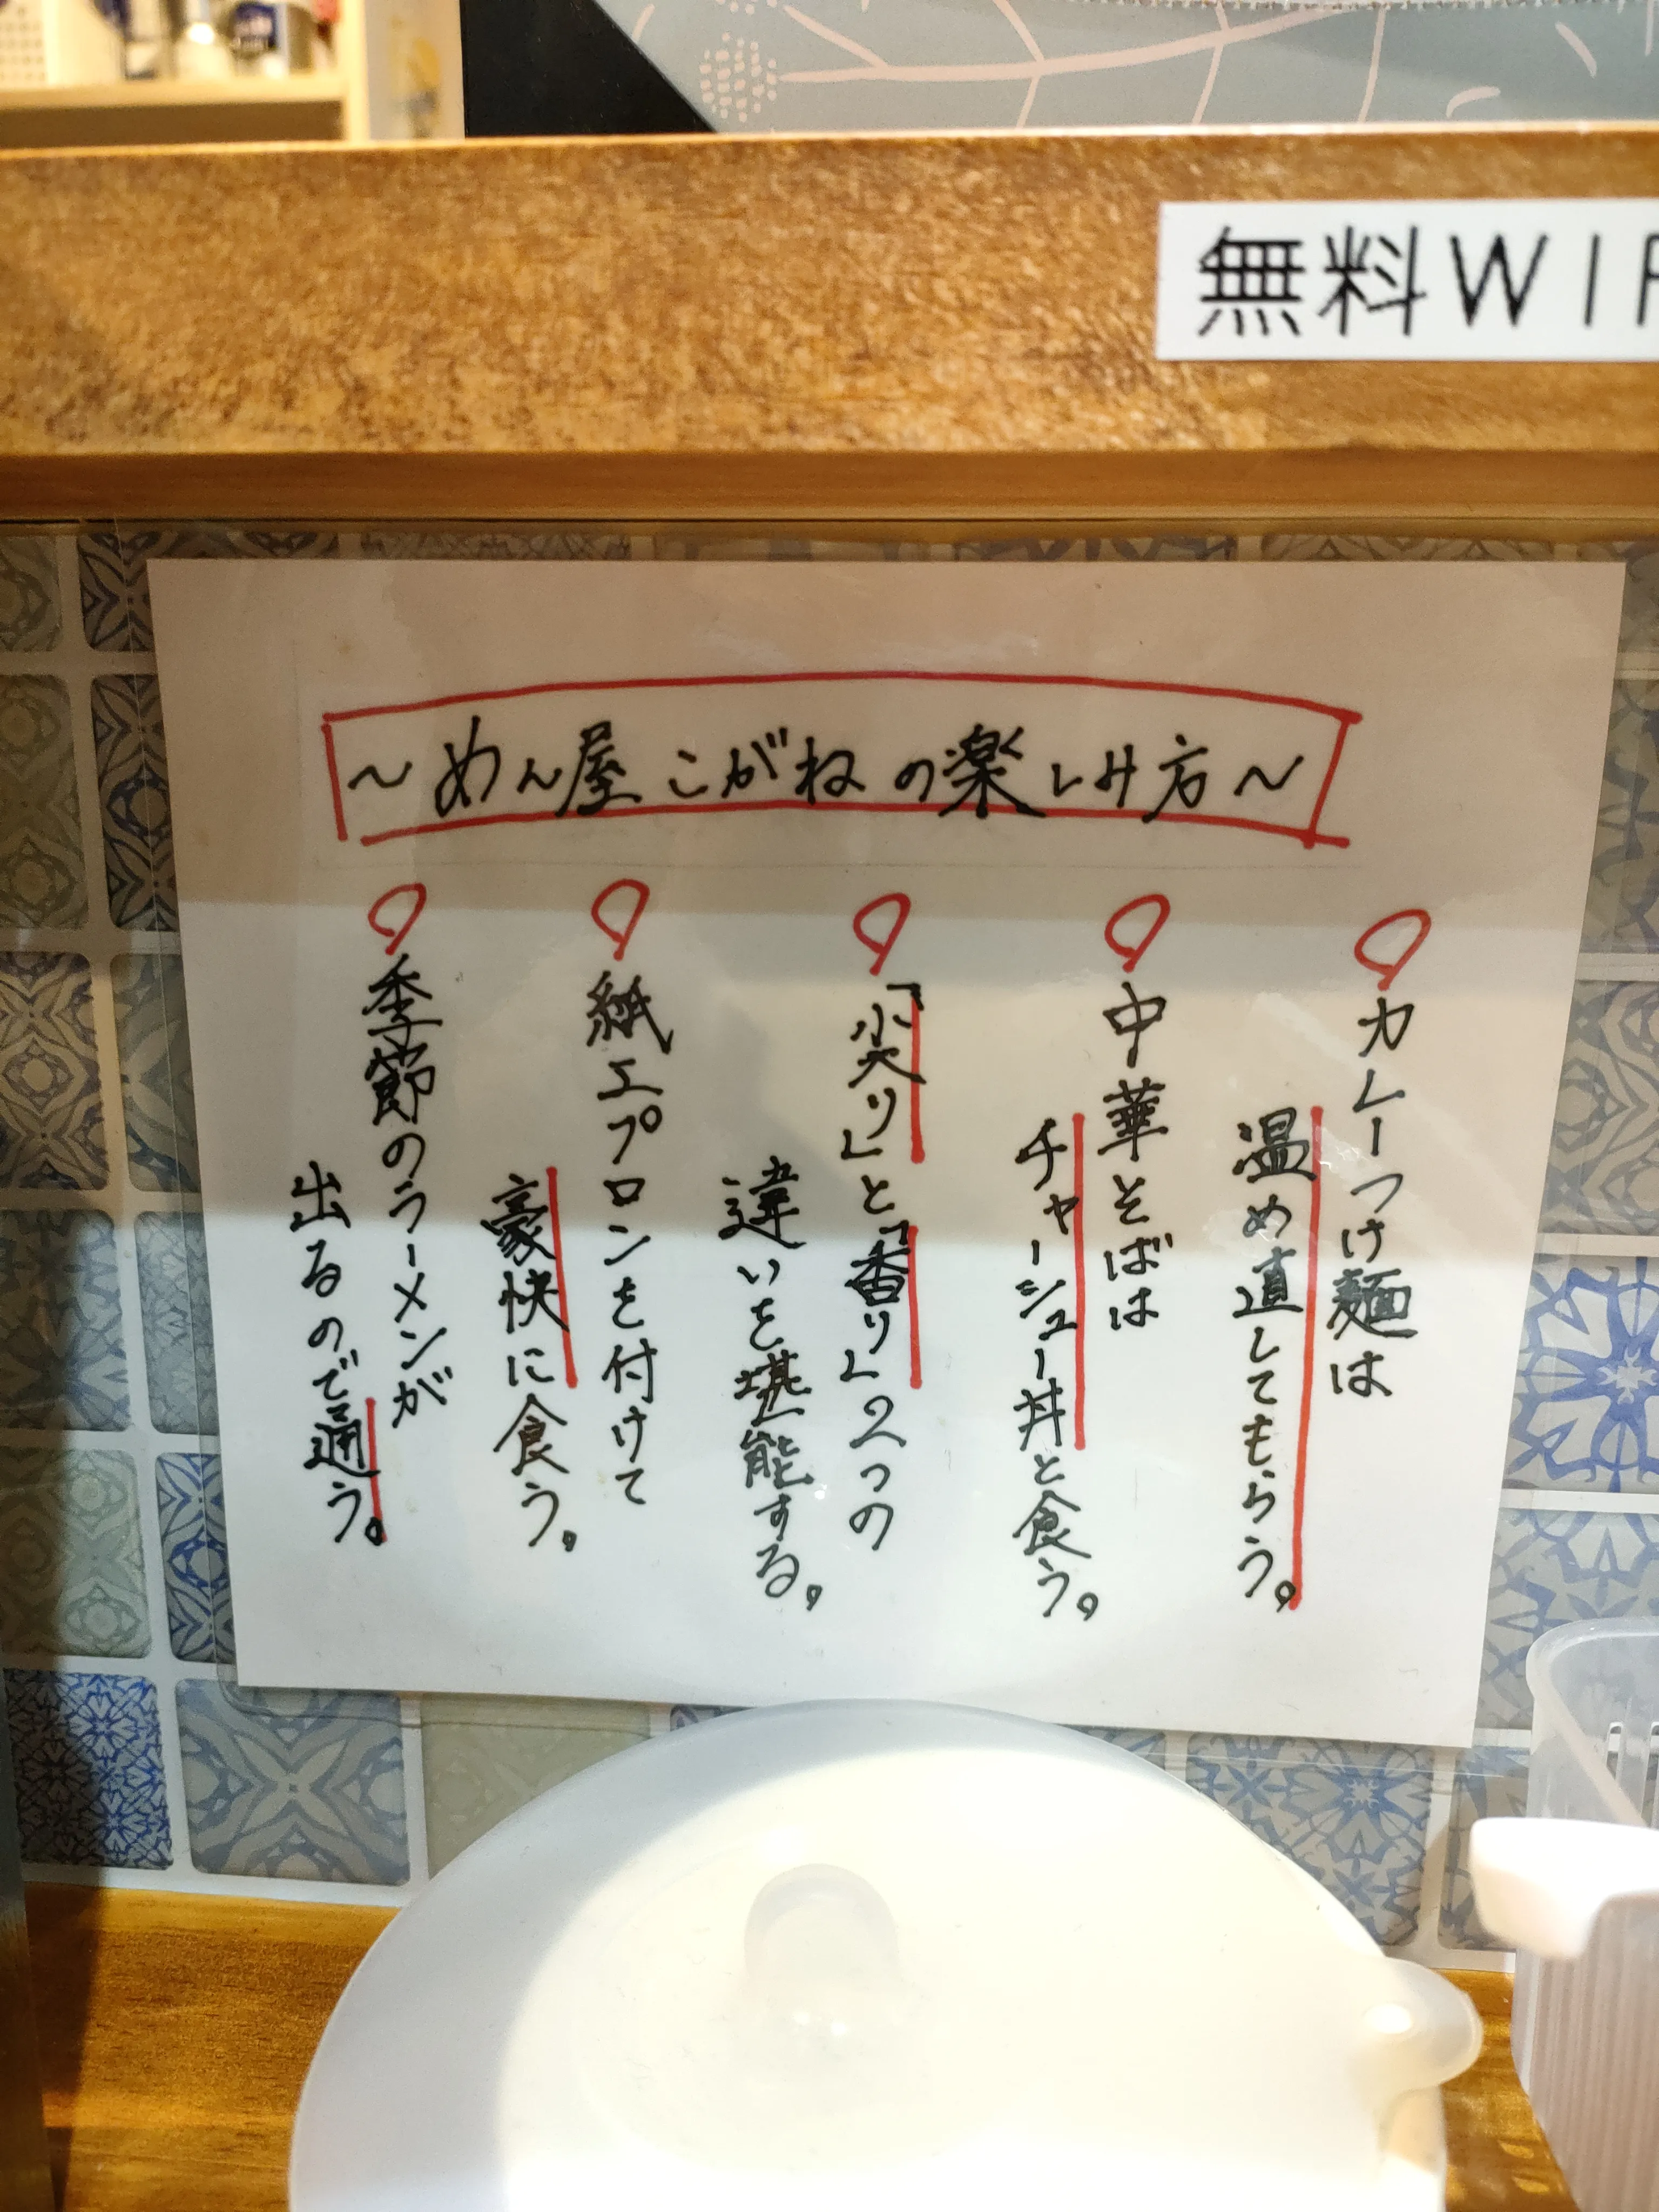 無料WIF
～めん屋こがねの楽しみ方～
カレーつけ麺は
温め直してもらう。
中華そばは
チャーシュー丼と食う。
「尖り」と「香り」2つの
違いを堪能する。
紙エプロンを付けて
豪快に食う。
季節のラーメンが
出るので通う。